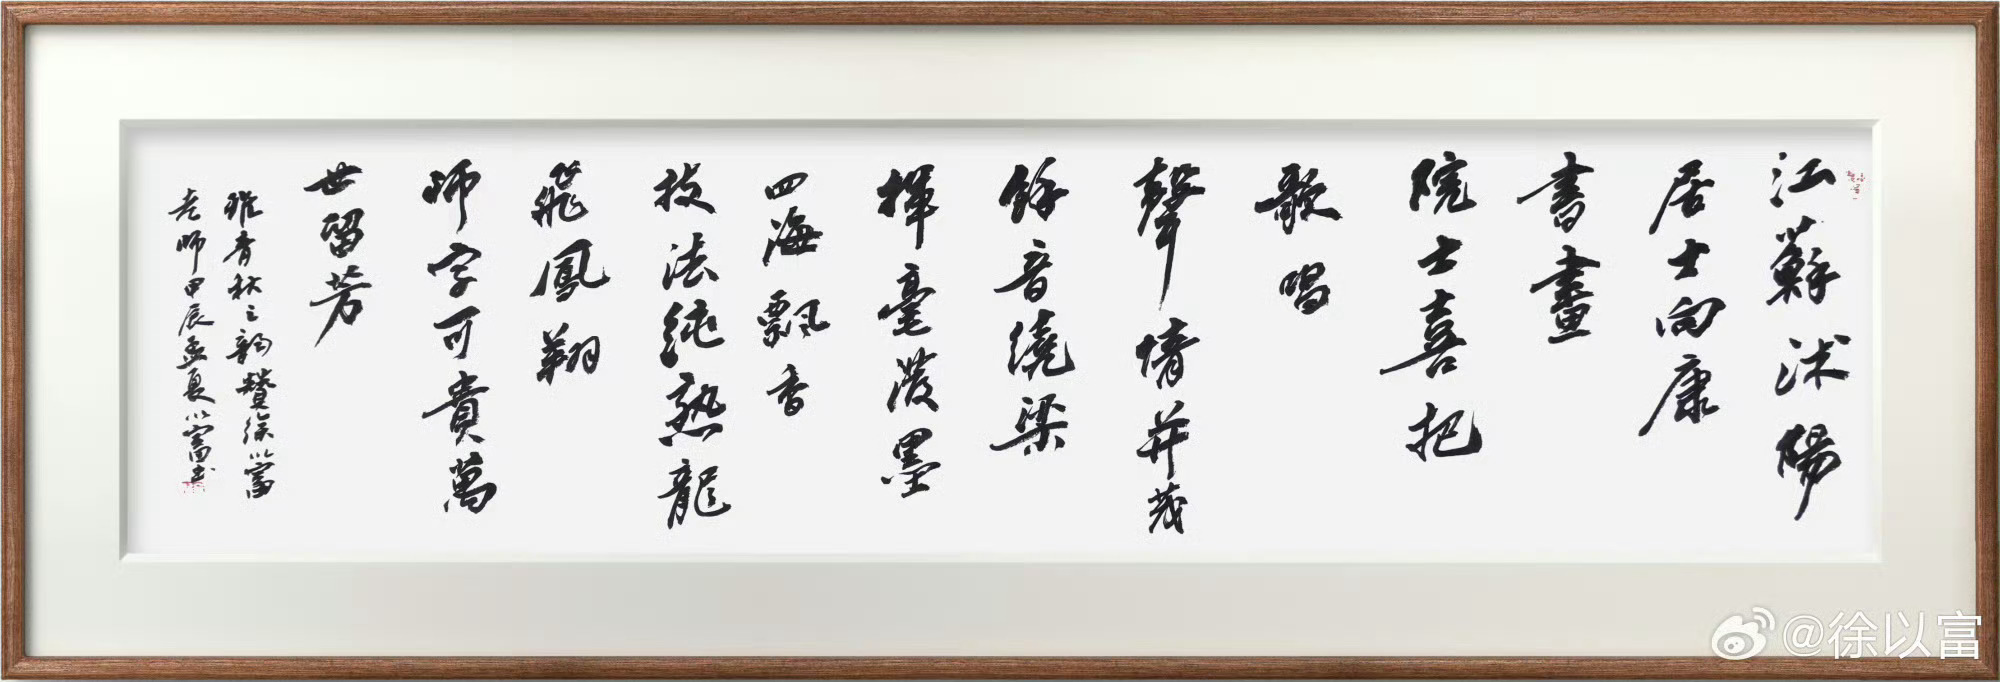 江蘇沭陽
居士向康
書畫
院士喜把
歌唱
聲情并茂
餘音繞梁
揮毫潑墨
四海飄香
技法純熟龍
飛鳳翔
師字可貴萬
世留芳
雅青秋之韵贊徐以富
老師甲辰孟夏以富書
@徐以富